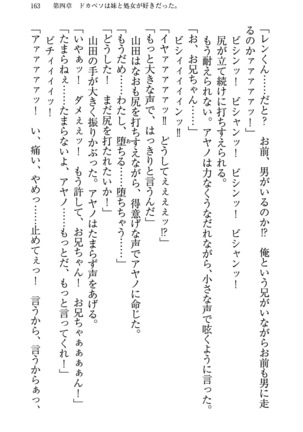 163　第四章　ドカベソは妹と処女が好きだった。
「レンくん……だと？　お前、男がいるのか⁉　俺という兄がいながらお前も男に走
ビシンッ！　ビシャンッ！　ビシンッ！　ビシャンッ！
尻が立て続けに打ちすえられる。
もう耐えられない。アヤノは力なくうなだれて、小さな声で呟くように言った。
「お、お兄ちゃん……」
ビシィィィィインッ‼
「イヤァァァァッ‼　どうしてぇぇぇぇッ⁉」
「もっと大きな声で、はっきりと言うんだ」
山田はなおも尻を打ちすえながら、得意げな声でアヤノに命じた。
「もうだめ……わたし、堕ちる……堕ちちゃう……」
「どうした！　まだ尻を打たれたいか！」
山田の手が大きく振りかぶった。アヤノはたまらず声をあげる。
「いやぁッ！　ダメぇぇッ！　もう許して、お兄ちゃん！　お兄ちゃぁぁぁぁん！」
「たまらねぇ……たまらないよ、アヤノ……もっとだ、もっと言ってくれ！」
ビチィィィィッ！
「アァァァァァッ！　い、痛い、やめっ……止めてぇっ！　言うから、言うからぁっ